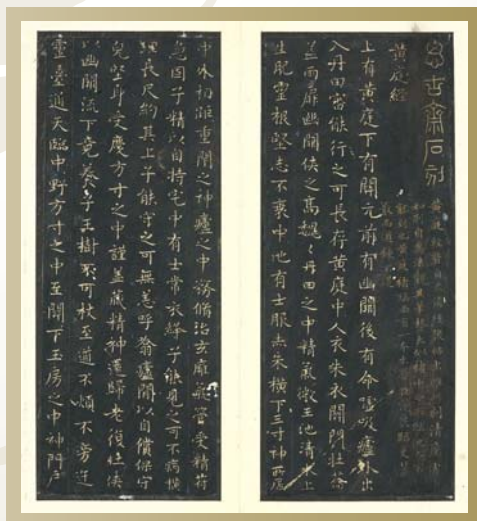 古齋石刻
黄庭經
上有黄庭下有關元前有幽關後有命噓吸廬外出
入丹田審能行之可長存黄庭中人衣朱衣關門壯籥
蓋兩扉幽關俠之高巍〻丹田之中精氣微玉池清水上
生肥靈根堅志不衰中池有士服赤朱横下三寸神所居
中外相距重閉之神廬之中務脩治玄廱氣管受精符
急固子精以自持宅中有士常衣絳子能見之可不病横
理長尺約其上子能守之可無恙呼翕廬間以自償保守
皃堅身受慶方寸之中謹蓋藏精神還歸老復壯俠
以幽關流下竟養子玉樹不可杖至道不煩不旁迕
靈臺通天臨中野方寸之中至關下玉房之中神門戶